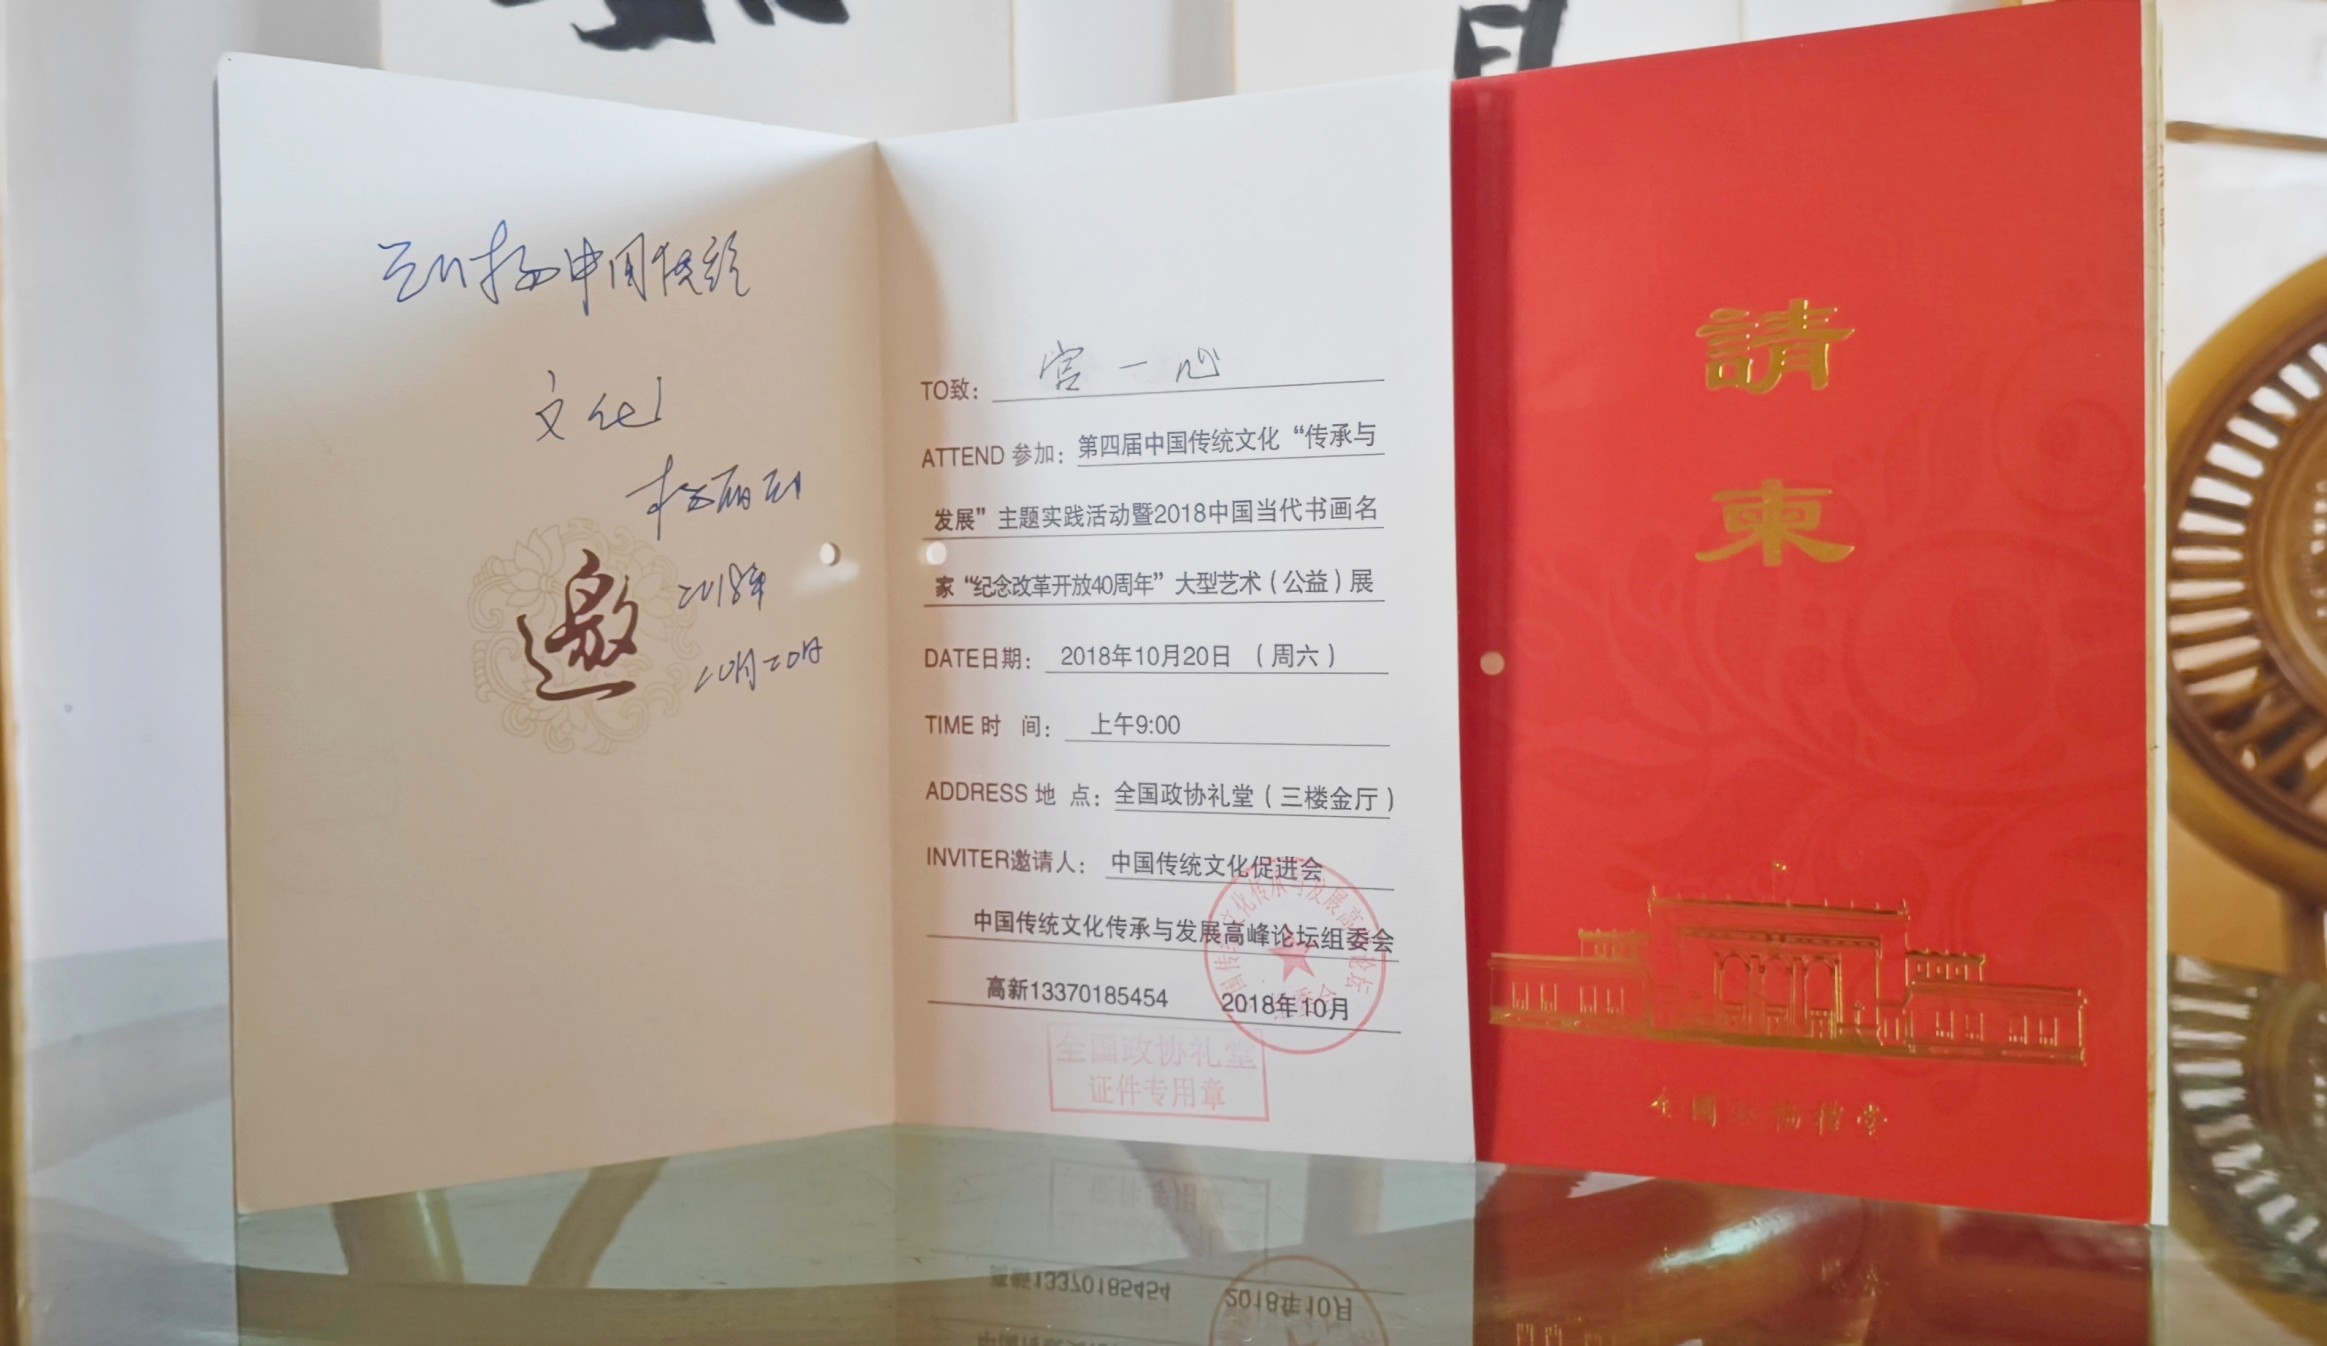 弘扬中国传统
文化
2018年
10月20日
邀
TO致： 宫一心
ATTEND 参加：第四届中国传统文化“传承与
发展”主题实践活动暨2018中国当代书画名
家“纪念改革开放40周年”大型艺术（公益）展
DATE日期： 2018年10月20日 （周六）
TIME 时 间： 上午9:00
ADDRESS 地 点：全国政协礼堂（三楼金厅）
INVITER邀请人： 中国传统文化促进会
中国传统文化传承与发展高峰论坛组委会
高新13370185454 2018年10月
全国政协礼堂
证件专用章
請
柬
全国政协礼堂